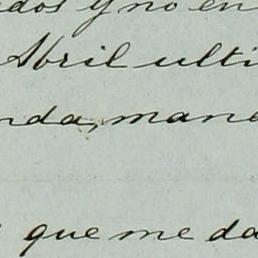 ados y no en
Abril ulti
nda, mand
que me da